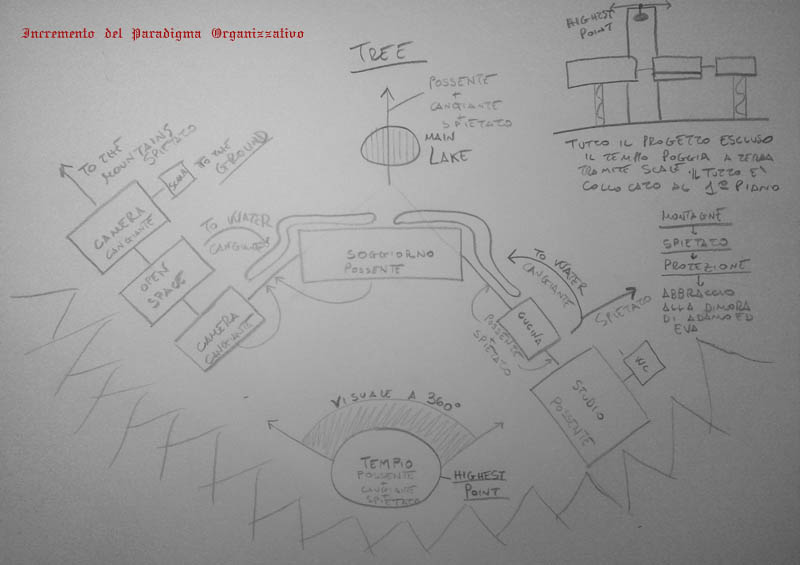 Incremento del Paradigma Organizzativo
TREE
POSSENTE
+
CANGIANTE
+
SPIETATO
MAIN
LAKE
HIGHEST
POINT
TUTTO IL PROGETTO ESCLUSO
IL TEMPIO POGGIA A TERRA
TRAMITE SCALE. IL TUTTO E'
COLLOCATO AL 1º PIANO
TO THE
MOUNTAINS
SPIETATO
SCALA
TO THE
GROUND
CAMERA
CANGIANTE
OPEN
SPACE
CAMERA
CANGIANTE
TO WATER
CANGIANTE
SOGGIORNO
POSSENTE
TO WATER
CANGIANTE
CUCINA
POSSENTE
+
SPIETATO
SPIETATO
MONTAGNE
SPIETATO
PROTEZIONE
ABBRACCIO
ALLA DIMORA
DI ADAMO ED
EVA
WC
STUDIO
POSSENTE
VISUALE A 360º
TEMPIO
POSSENTE
+
CANGIANTE
+
SPIETATO
HIGHEST
POINT